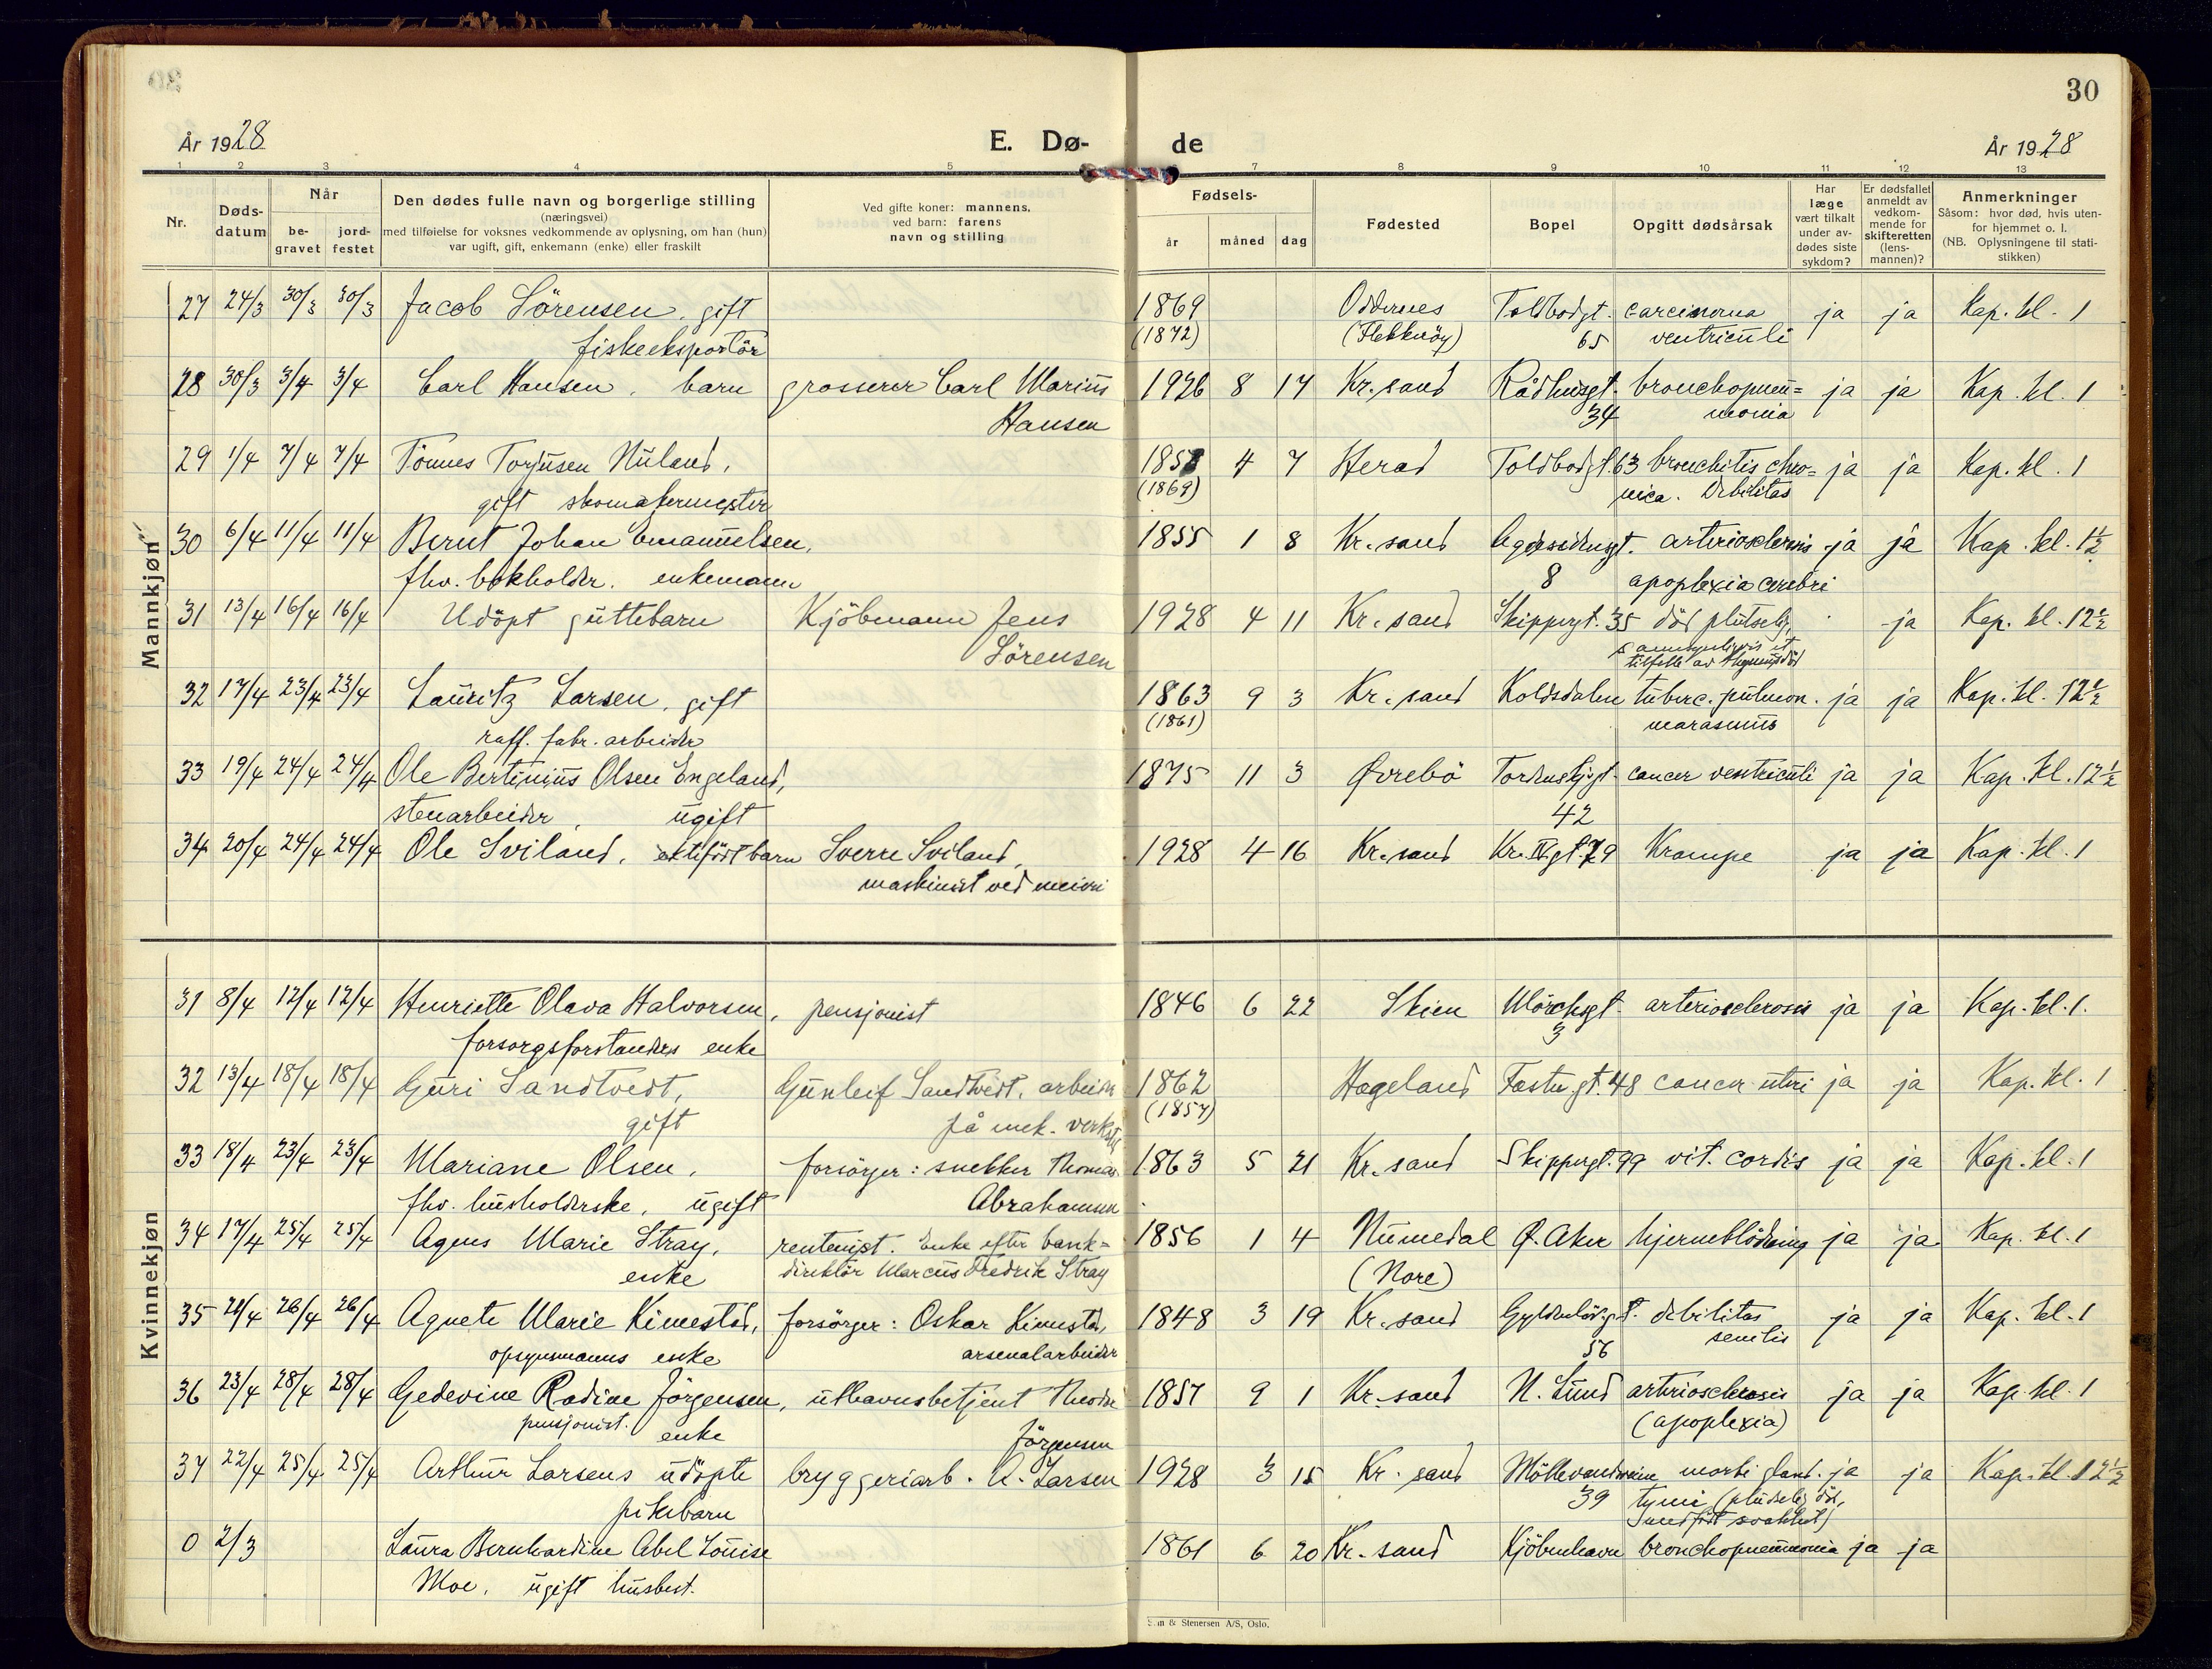 30
År 1928
E. Dø-
de
År 1928
1 2 3 4 5 7 8 9 10 11 12 13
Nr.
Døds-
datum
Når
be-
gravet
jord-
festet
Den dødes fulle navn og borgerlige stilling
(næringsvei)
med tilføielse for voksnes vedkommende av oplysning, om han (hun)
var ugift, gift, enkemann (enke) eller fraskilt
Ved gifte koner: mannens,
ved barn: farens
navn og stilling
Fødsels-
år måned dag
Fødested
Bopel
Opgitt dødsårsak
Har
læge
vært tilkalt
under av-
dødes siste
sykdom?
Er dødsfallet
anmeldt av
vedkom-
mende for
skifteretten
(lens-
mannen)?
Anmerkninger
Såsom: hvor død, hvis uten-
for hjemmet o. l.
(NB. Oplysningene til stati-
stikken)
Mannkjøn
27 24/3 30/3 30/3 Jacob Sörensen, gift 1869 Oddernes Toldbodgt. carcinoma ja ja Kap. kl. 1
fiskeeksportör (1872) (Flekkeröy) 65 ventriculi
28 30/3 3/4 3/4 Carl Hansen, barn grosserer Carl Marius 1926 8 17 Kr.sand Rådhusgt. bronchopneu= ja ja Kap. kl. 1
Hansen 34 monia
29 1/4 7/4 7/4 Tönnes Torjusen Nuland, 1858 4 7 Herad Toldbodgt. 63 bronchitis chro= ja ja Kap. kl. 1
gift skomakermester (1869) nica. Debilitas
30 6/4 11/4 11/4 Bernt Johan Emanuelsen, 1855 1 8 Kr.sand Agdesidensgt. arteriosclerosis ja ja Kap. kl. 1½
fhv. bokholder. enkemann 8 apoplexia cerebri
31 13/4 16/4 16/4 Udöpt guttebarn Kjöbmann Jens 1928 4 11 Kr.sand Skippergt. 35 död plutselig, ja Kap. kl. 12½
Sörensen
tilfelle av thymusdöd
32 17/4 23/4 23/4 Lauritz Larsen, gift 1863 9 3 Kr.sand Koldsdalen tuberc. pulmon. ja ja Kap. kl. 12½
raff. fabr. arbeider (1861) marasmus
33 19/4 24/4 24/4 Ole Bertinius Olsen Engeland, 1875 11 3 Øvrebö Tordenskjgt. cancer ventriculi ja ja Kap. kl. 12½
stenarbeider, ugift 42
34 20/4 24/4 24/4 Ole Sviland, ektefödt barn Sverre Sviland, 1928 4 16 Kr.sand Kr. IV gt. 79 Krampe ja ja Kap. kl. 1
maskinist ved meieri
Kvinnekjøn
31 8/4 12/4 12/4 Henriette Olava Halvorsen, pensjonist 1846 6 22 Skien Mörchsgt. arteriosclerosis ja ja Kap. kl. 1.
forsorgsforstanders enke 3
32 13/4 18/4 18/4 Guri Sandtvedt, Gunleif Sandtvedt, arbeider 1862 Hægeland Festngt. 48 cancer uteri ja ja Kap. kl. 1
gift på mek. verksted (1857)
33 18/4 23/4 23/4 Mariane Olsen, forsörger: snekker Thomas 1863 5 21 Kr.sand Skippergt. 99 vit. cordis ja ja Kap. kl. 1
fhv. husholderske, ugift Abrahamsen
34 17/4 25/4 25/4 Agnes Marie Stray, rentenist. Enke efter bank= 1856 1 4 Numedal Ø. Aker hjerneblödning ja ja Kap. kl. 1
enke direktör Marcus Fredrik Stray (Nore)
35 21/4 26/4 26/4 Agnete Marie Kimestad, forsörger: Oskar Kimestad, 1848 3 19 Kr.sand Gyldenlövesgt. debilitas ja ja Kap. kl. 1
opsynsmanns enke arsenalarbeider 56 senilis
36 23/4 28/4 28/4 Gedevine Rodine Jörgensen, uthavnsbetjent Theodor 1857 9 1 Kr.sand N. Lund arteriosclerosis ja ja Kap. kl. 1
pensjonist. enke Jörgensen (apoplexia)
37 22/4 25/4 25/4 Arthur Larsens udöpte bryggeriarb. A. Larsen 1928 3 15 Kr.sand Möllevandveien morbi gland. ja ja Kap. kl. 12½
pikebarn 39 tymi (plutselig död,
medfödt svakhet)
0 2/3 Laura Bernhardine Abel Louise 1861 6 20 Kr.sand Kjöbenhavn bronchopneumonia ja ja
Moe, ugift husbest.
& Stenersen A/S, Oslo.